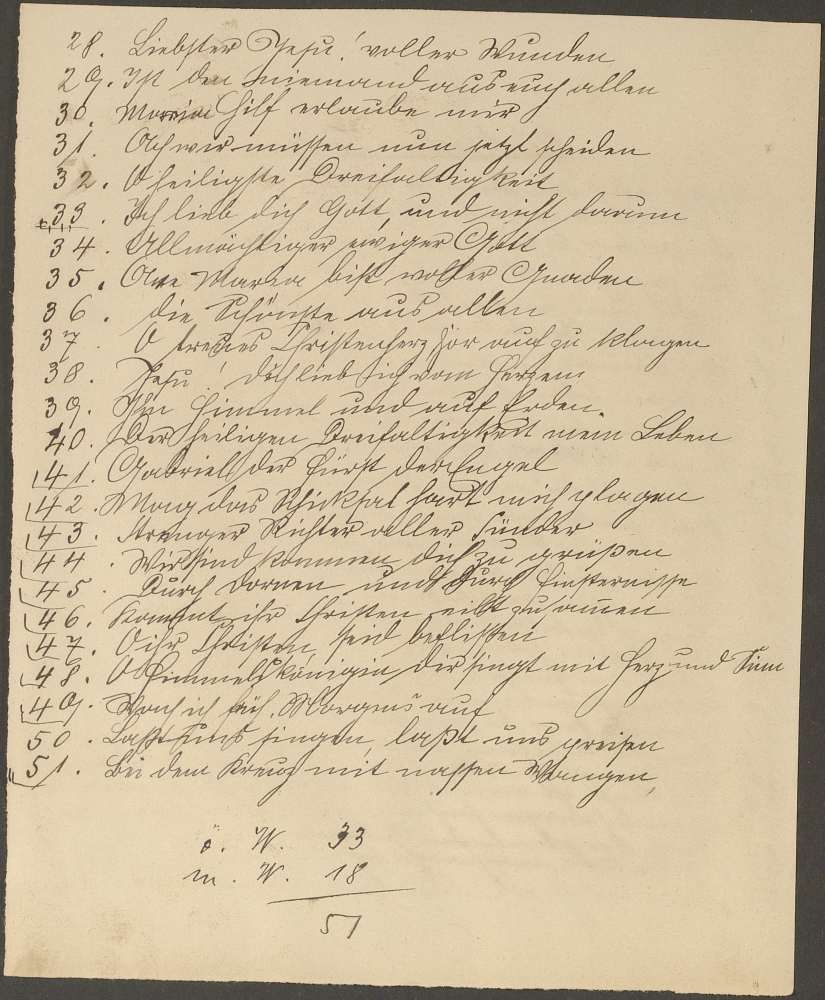 28. Liebster Jesu! voller Wunden
29. Ist den niemand aus euch allen
30. Maria hilf erlaube mir
31. Ach wir müssen nun jetzt scheiden
32. O heiligste Dreifaltigkeit
33. Ich lieb dich Gott, und nicht darum
34. Allmächtiger ewiger Gott
35. Ave Maria bist voller Gnaden
36. die Schönste aus allen
37. O treues Christenherz hör auf zu klagen
38. Jesu! dich lieb ich vom Herzen
39. Im Himmel und auf Erden.
40. Der heiligen Dreifaltigkeit mein Leben
41. Gabriel der Fürst der Engel
42. Mag das Schicksal hart mich plagen
43. Strenger Richter aller Sünder
44. Wir sind kommen dich zu grüßen
45. Durch Dornen und durch Finsternisse
46. Kommt ihr Christen eilt zusamen
47. O ihr Christen, seid beflißen
48. O Himmelskönigin dir singt mit Herz und Sinn
49. Wach ich früh Morgens auf
50. Laßt uns singen, laßt uns preisen
51. Bei dem Kreuz mit nassen Wangen,
ö. W. 33
m. W. 18
51